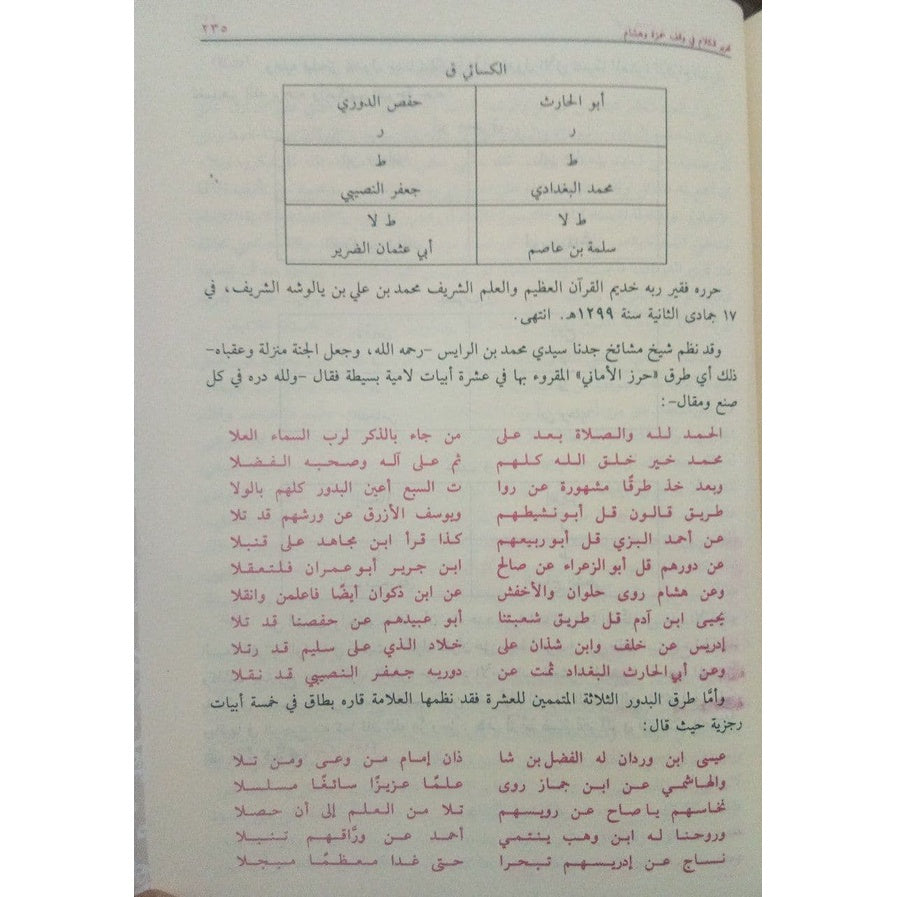 تحرير الكلام في وقف حمزة وهشام ٢٣٥
الكسائي ق
أبو الحارث حفص الدوري
ر ر
ط ط
محمد البغدادي جعفر النصيبي
ط لا ط لا
سلمة بن عاصم أبي عثمان الضرير
حرره فقير ربه خديم القرآن العظيم والعلم الشريف محمد بن علي بن يالوشه الشريف، في
١٧ جمادى الثانية سنة ١٢٩٩هـ. انتهى.
وقد نظم شيخ مشائخ جدنا سيدي محمد بن الرايس -رحمه الله، وجعل الجنة منزلة وعقباه-
ذلك أي طرق «حرز الأماني» المقروء بها في عشرة أبيات لامية بسيطة فقال -ولله دره في كل
صنع ومقال-:
الحمد لله والصلاة بعد على من جاء بالذكر لرب السماء العلا
محمد خير خلق الله كلهم ثم على آله وصحبه الفضلا
وبعد خذ طرقًا مشهورة عن روا ت السبع أعين البدور كلهم بالولا
طريق قالون قل أبو نشيطهم ويوسف الأزرق عن ورشهم قد تلا
عن أحمد البزي قل أبو ربيعهم كذا قرأ ابن مجاهد على قنبلا
عن دورهم قل أبو الزعراء عن صالح ابن جرير أبو عمران فلتعقلا
وعن هشام روى حلوان والأخفش عن ابن ذكوان أيضًا فاعلمن وانقلا
يحيى ابن آدم قل طريق شعبتنا أبو عبيدهم عن حفصنا قد تلا
إدريس عن خلف وابن شذان على خلاد الذي على سليم قد رتلا
وعن أبي الحارث البغداد ثمت عن دوريه جعفر النصيبي قد نقلا
وأمَّا طرق البدور الثلاثة المتممين للعشرة فقد نظمها العلامة قاره بطاق في خمسة أبيات
رجزية حيث قال:
عيسى ابن وردان له الفضل بن شا ذان إمام من وعى ومن تلا
والهاشمي عن ابن جماز روى علمًا عزيزًا سائغًا مسلسلا
نخاسهم يا صاح عن رويسهم تلا من العلم إلى أن حصلا
وروحنا له ابن وهب ينتمي أحمد عن ورَّاقهم تنبلا
نساج عن إدريسهم تبحرا حتى غدا معظمًا مبجلا